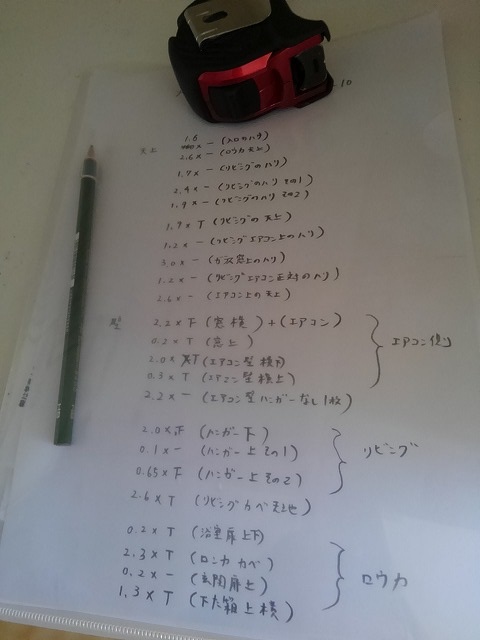 10
天上
1.6
x - (入口のハリ)
2.6 x - (ロウカ天上)
1.7 x - (リビングのハリ)
2.4 x - (リビングのハリ その1)
1.9 x - (リビングのハリ その2)
1.7 x T (リビングの天上)
1.2 x - (リビングエアコン上のハリ)
3.0 x - (窓上のハリ)
1.2 x - (リビングエアコン正対のハリ)
2.6 x - (エアコン上の天上)
壁
2.2 x 下 (窓横) + (エアコン)
0.2 x T (窓上)
2.0 x T (エアコン型横内)
0.3 x T (エアコン型横上)
2.2 x - (エアコン型ハンガーなし1枚)
エアコン側
2.0 x 正 (ハンガー下)
0.1 x - (ハンガー上その1)
0.65 x 下 (ハンガー上その2)
2.6 x T (リビングカベ天地)
リビング
0.2 x T (浴室扉上下)
2.3 x T (ロウカカベ)
0.2 x - (玄関扉上)
1.3 x T (下た箱上横)
ロウカ